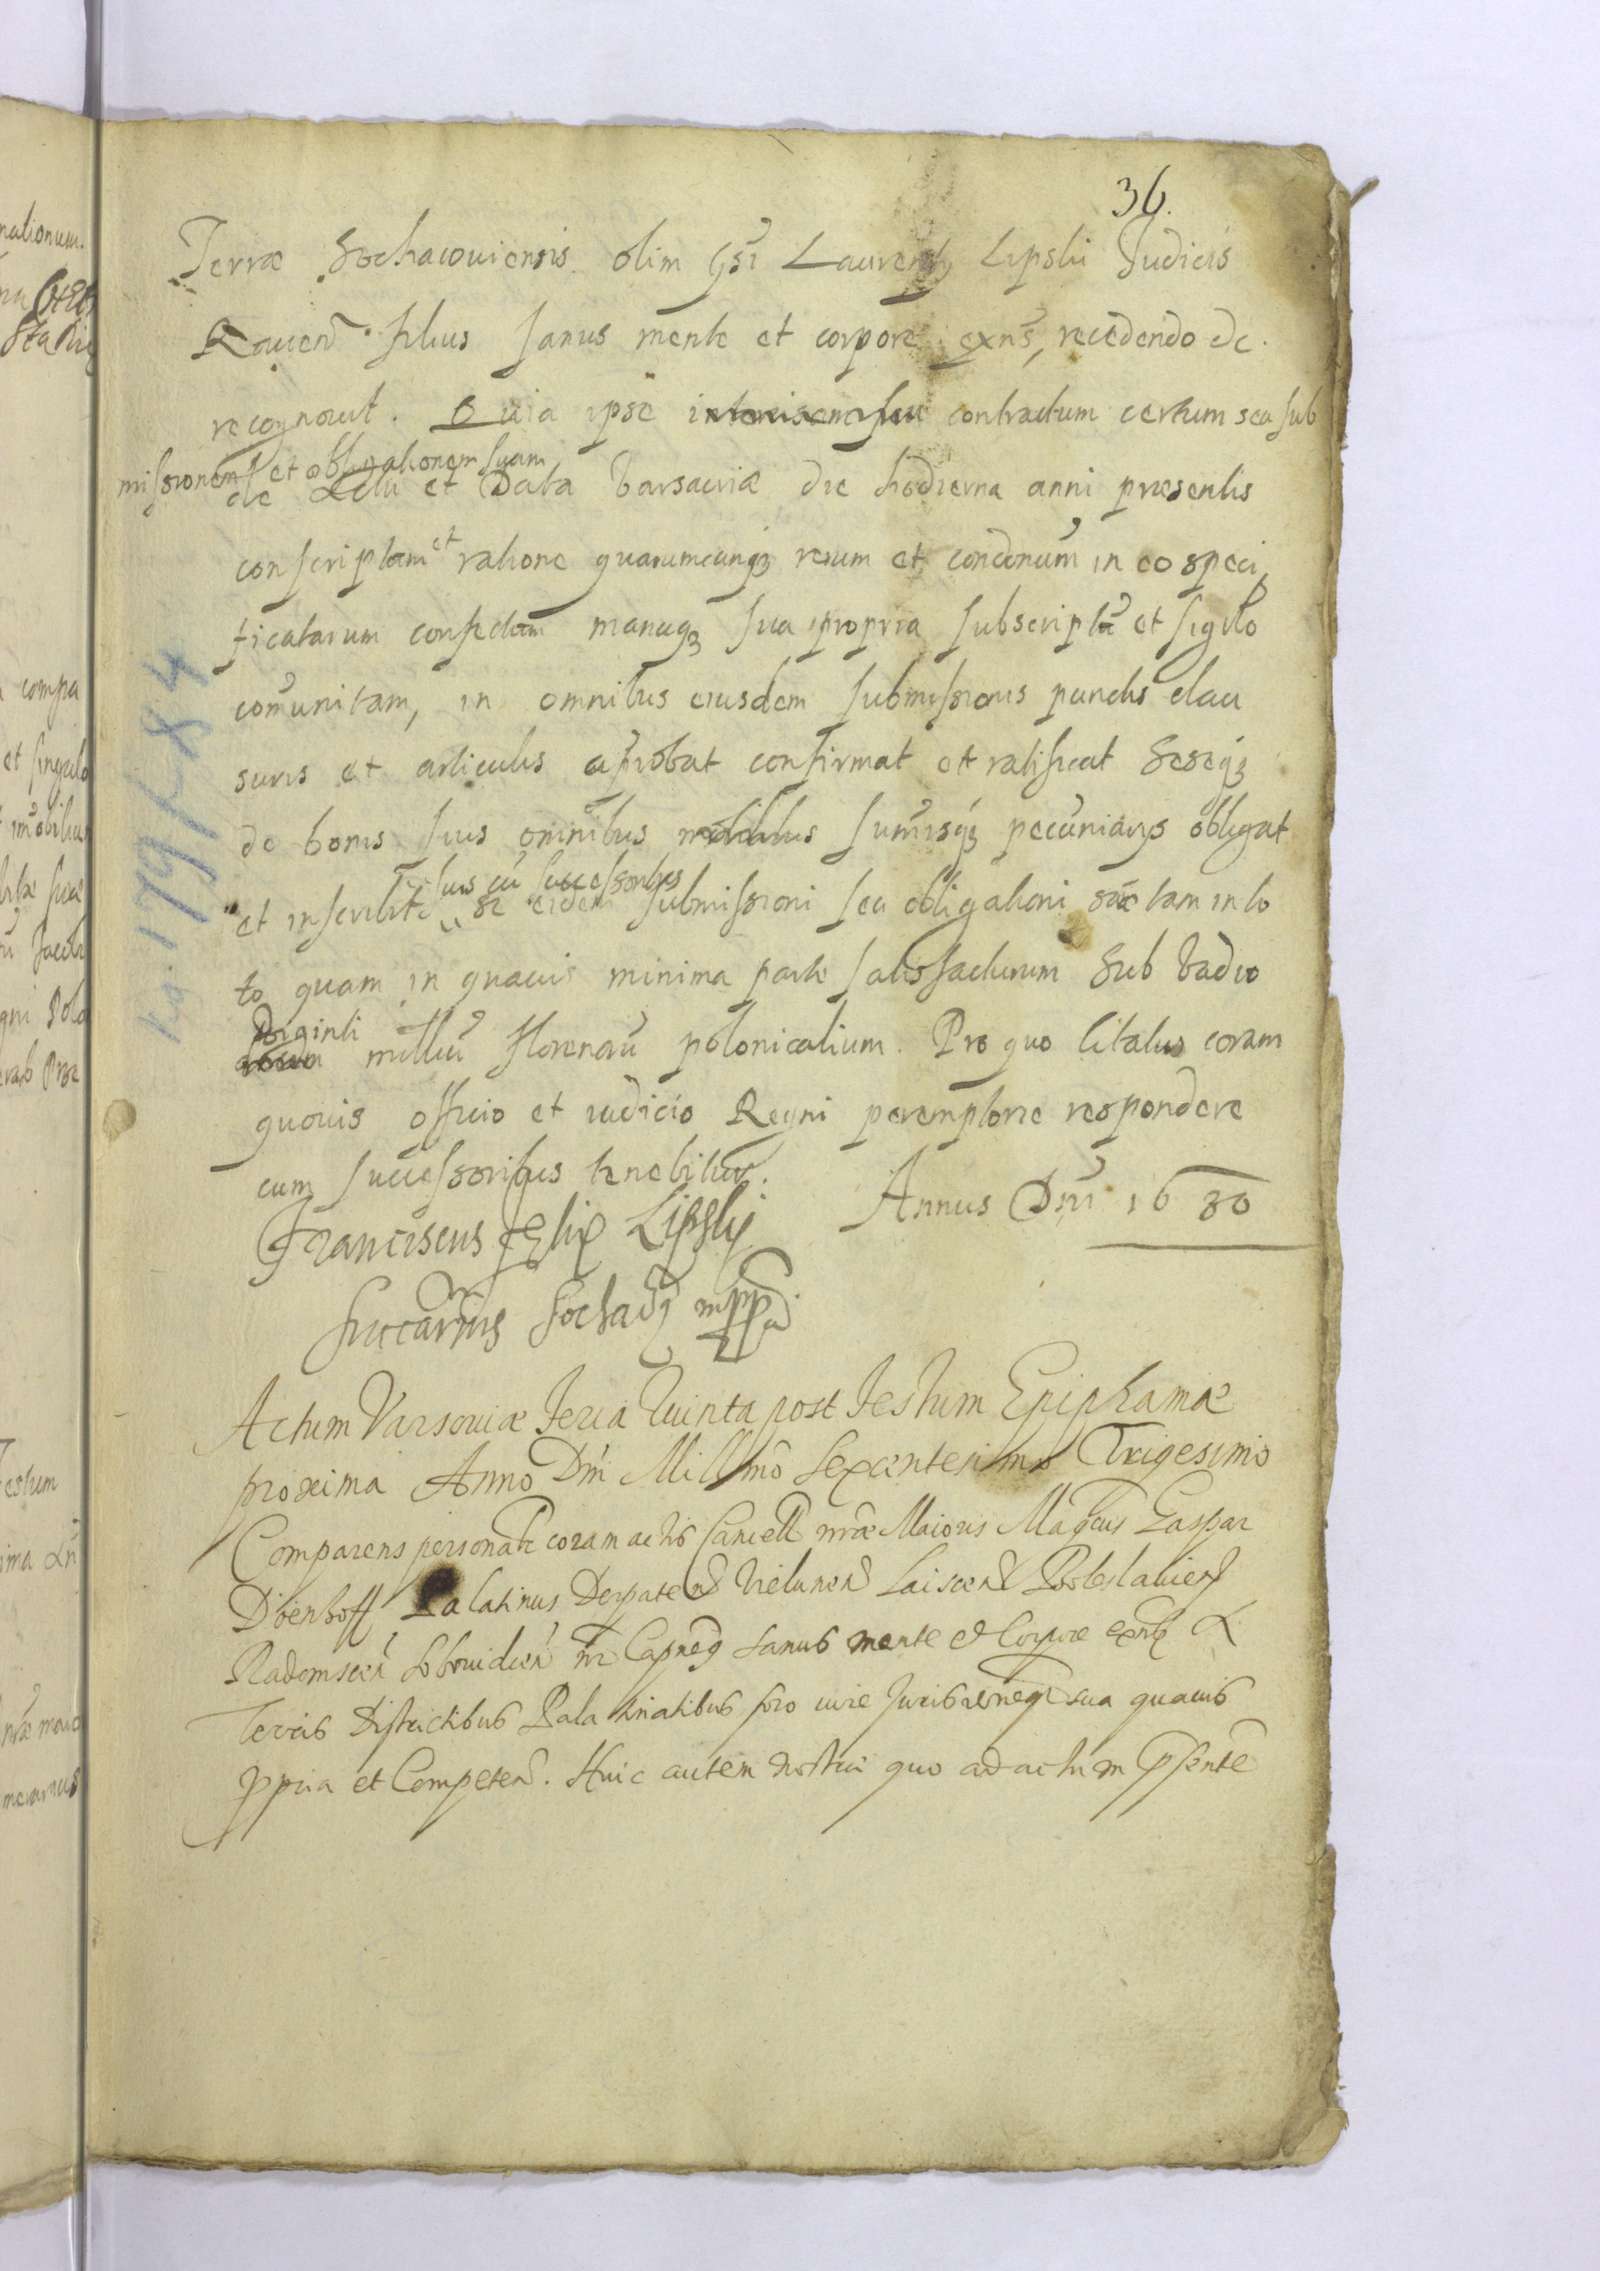 36.
Terræ Sochacouiensis olim Gsi Laurentij Lipskii Judicis
Rauen filius sanus mente et corpore exns, recedendo etc.
recognouit. Quia ipse contractum certum seu sub
missionem et obligationem suam
de Actu et Data Varsauiæ die hodierna anni præsentis
conscriptam et ratione quarumcunq3 rerum et condonum in eo speci
ficatarum confectam manuq3 sua propria subscriptā et sigillo
comunitam, in omnibus eiusdem submissionis punctis clau
suris et articulis aprobat confirmat et ratificat Seseq3
de bonis suis omnibus mobilibus sumisq3 pecuniarijs obligat
suis cū successoribus
et inscribit se eidem submissioni seu obligationi suæ tam in to
to quam in quauis minima parte satisfacturum Sub Vadio
Viginti
milliū florenorū polonicalium. Pro quo citatus coram
quouis officio et iudicio Regni peremptorie respondere
cum successoribus tenebitur.
Annus Dni 1630
Franciscus Felix Lipskij
Succamrius Sochac mppa
Actum Varsouiæ Feria Quinta post Festum Epiphaniæ
proxima Anno Dni Millmo Sexcentesimo Trigesimo
Comparens personalr coram actis Cancell nræ Maioris Magcus Gaspar
Döenhoff Palatinus Derpaten Vielunen Boleslauien
Radomscen Sobouidcen nr Capneq sanus mente et Corpore exns A
Terris Districtibus Palatinatibus foro iure Jurisdneq sua quauis
ppria et Competen. Huic autem nostræ quo ad actum psente
19.179/84